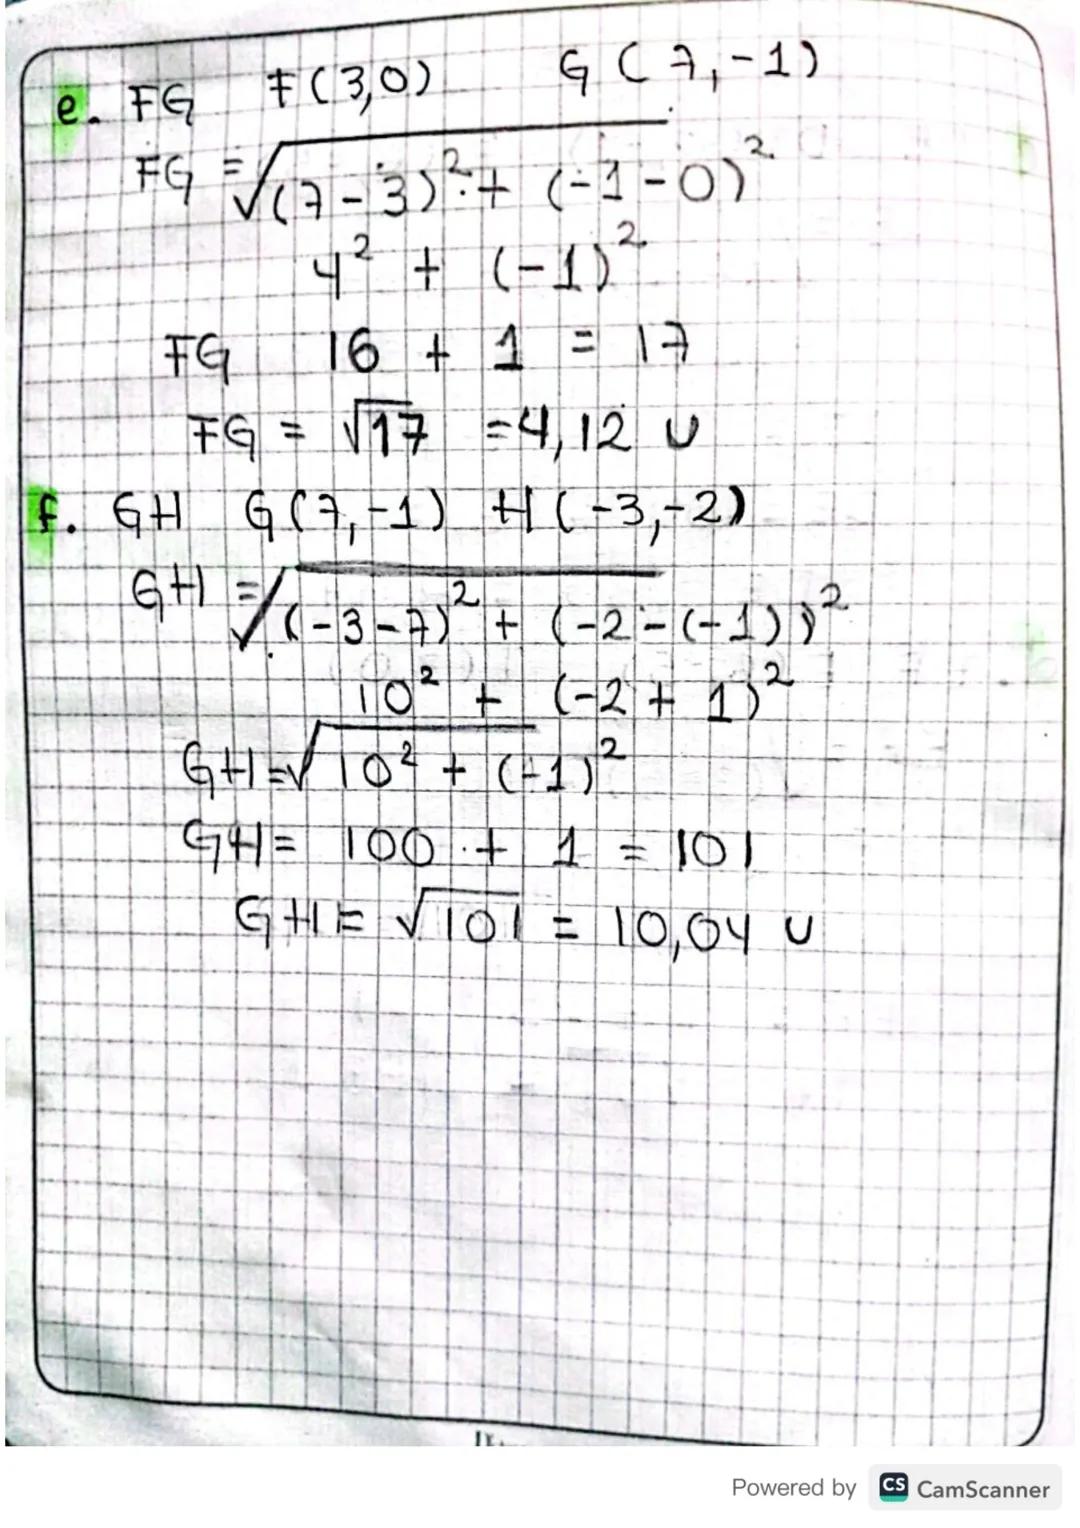 e. FG F(3,0) G(7,-1)
FG = √(7-3)² + (-1-0)²
4² + (-1)²
FG 16 + 1 = 17
FG = √17 = 4,12 u
f. GH G(7,-1) H(-3,-2)
GH = √(-3-7)² + (-2-(-1))²
10² + (-2+1)²
GH = √10² + (-1)²
GH = 100 + 1 = 101
GH = √101 = 10,04 u
Powered by CS CamScanner